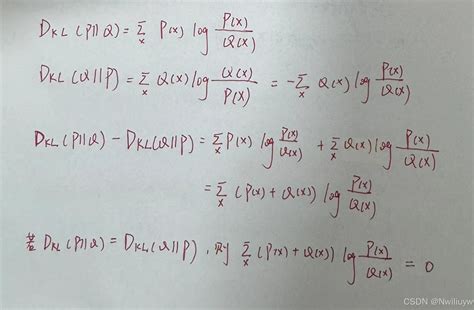 D_KL (P||Q) = Σ_x P(x) log P(x)/Q(x)
D_KL (Q||P) = Σ_x Q(x) log Q(x)/P(x) = -Σ_x Q(x) log P(x)/Q(x)
D_KL (P||Q) - D_KL (Q||P) = Σ_x P(x) log P(x)/Q(x) + Σ_x Q(x) log P(x)/Q(x)
= Σ_x (P(x) + Q(x)) log P(x)/Q(x)
若 D_KL (P||Q) = D_KL (Q||P) , 则 Σ_x (P(x) + Q(x)) log P(x)/Q(x) = 0
CSDN @Nwiliuyw